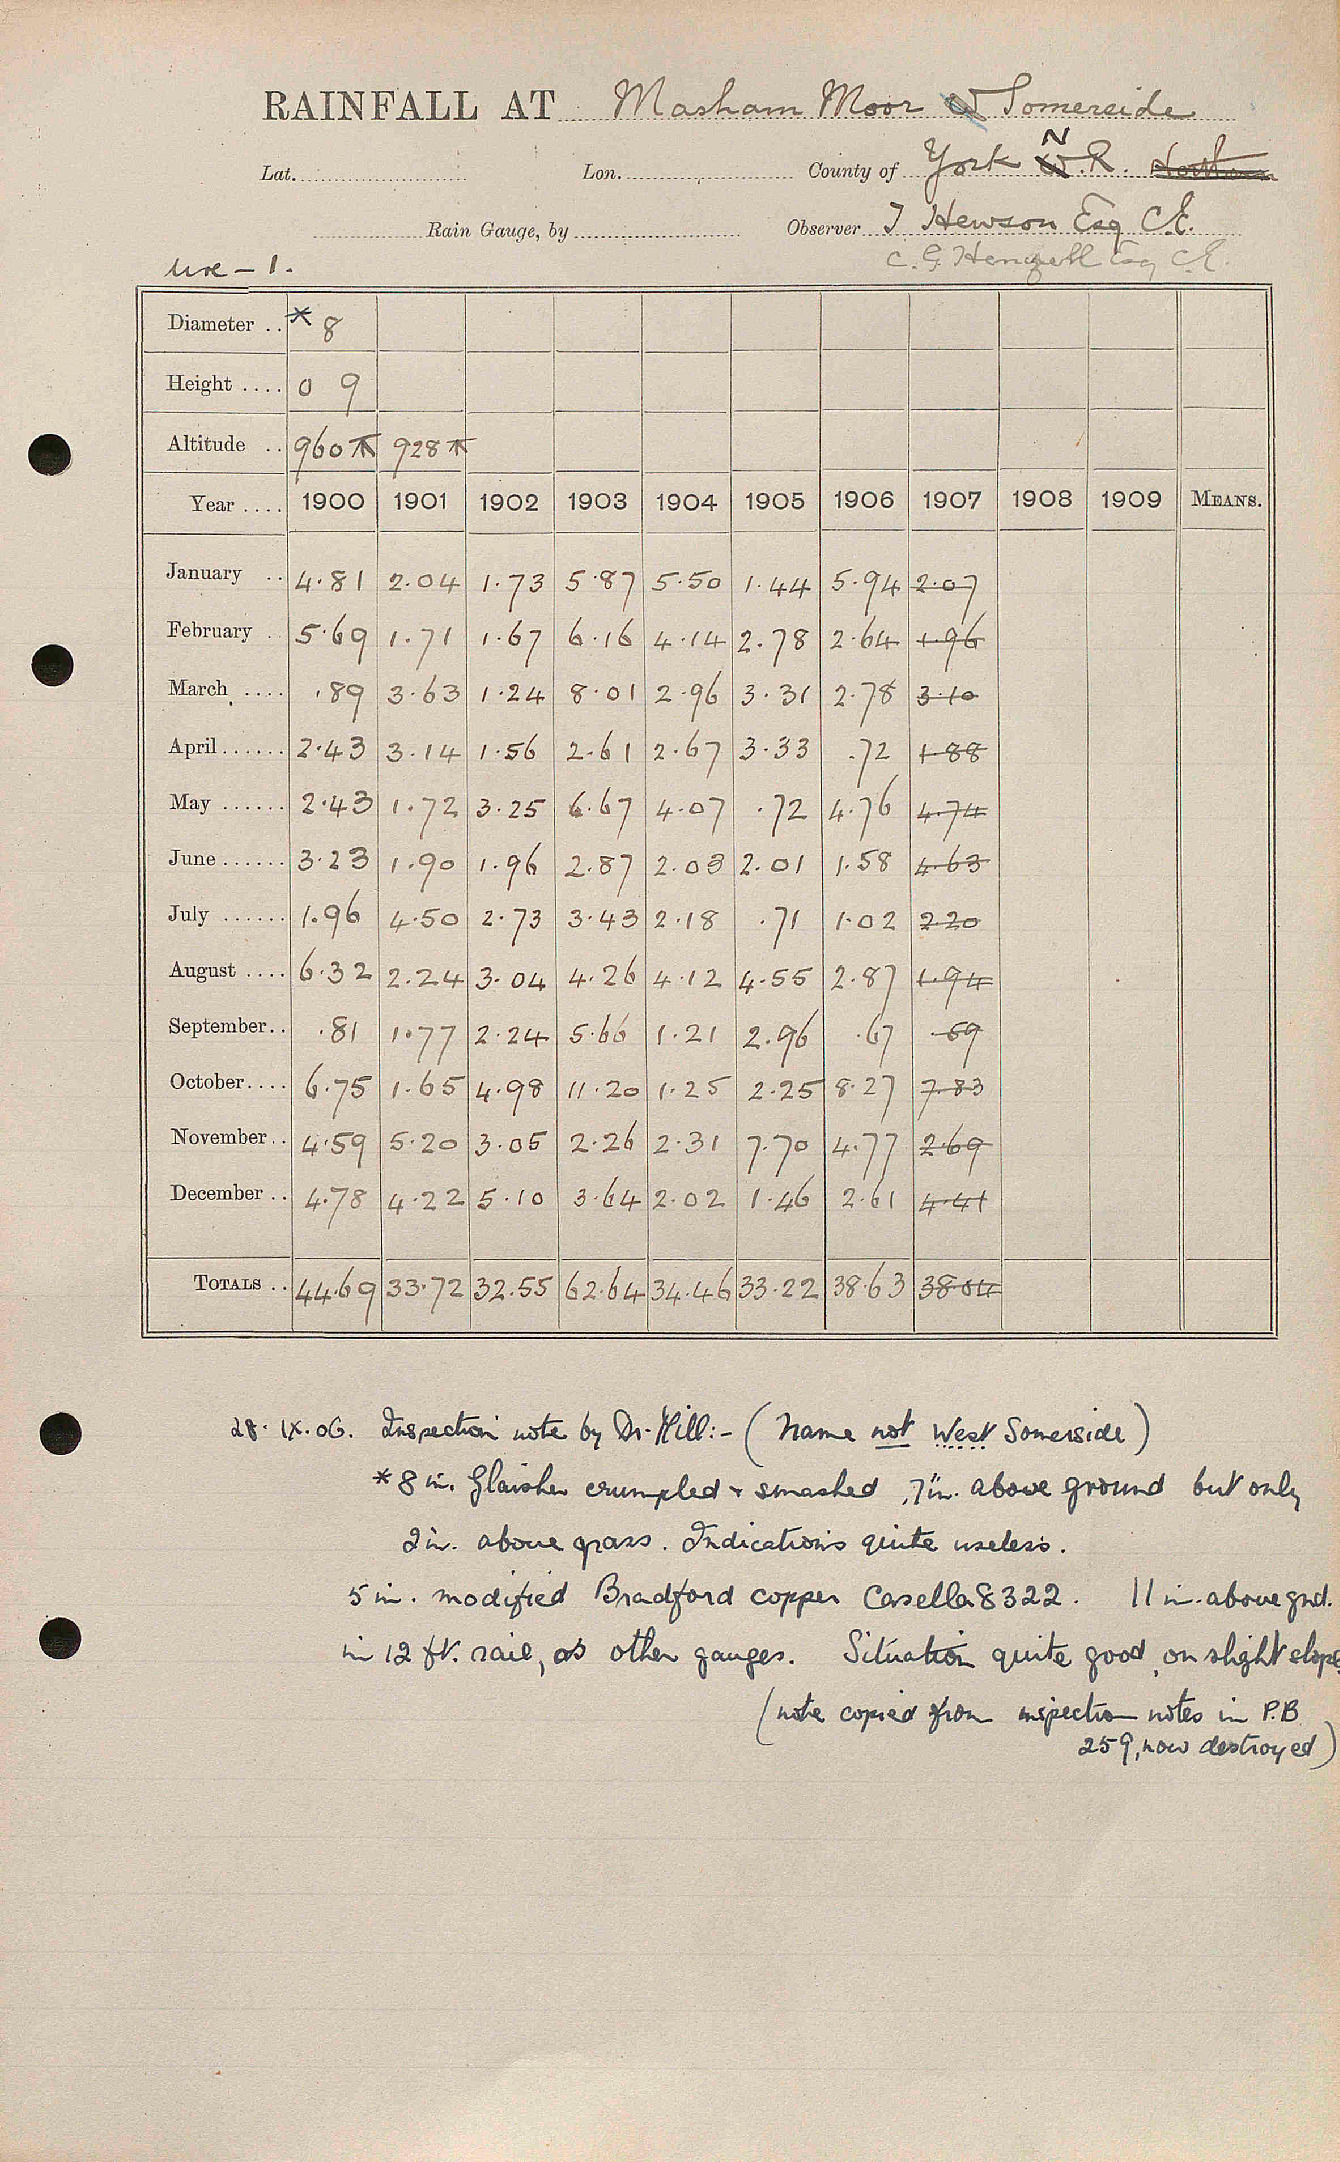 RAINFALL AT Masham Moor W Somerside
Lat. Lon. County of York N W.R.
Rain Gauge, by Observer T Hewson Esq C.E.
Ure - 1. C. G. Henzell Esq C.E.
Diameter .. * 8
Height .... 0 9
Altitude .. 960 928
Year .... 1900 1901 1902 1903 1904 1905 1906 1907 1908 1909 MEANS.
January .. 4.81 2.04 1.73 5.87 5.50 1.44 5.94 2.07
February .. 5.69 1.71 1.67 6.16 4.14 2.78 2.64 1.96
March .... .89 3.63 1.24 8.01 2.96 3.31 2.78 3.10
April ...... 2.43 3.14 1.56 2.61 2.67 3.33 .72 1.88
May ...... 2.43 1.72 3.25 6.67 4.07 .72 4.76 4.74
June ...... 3.23 1.90 1.96 2.87 2.03 2.01 1.58 4.63
July ...... 1.96 4.50 2.73 3.43 2.18 .71 1.02 2.20
August .... 6.32 2.24 3.04 4.26 4.12 4.55 2.87 1.94
September.. .81 1.77 2.24 5.66 1.21 2.96 .67 .59
October.... 6.75 1.65 4.98 11.20 1.25 2.25 8.27 7.83
November.. 4.59 5.20 3.05 2.26 2.31 7.70 4.77 2.69
December .. 4.78 4.22 5.10 3.64 2.02 1.46 2.61 4.41
TOTALS .. 44.69 33.72 32.55 62.64 34.46 33.22 38.63 38.04
28.IX.06. Inspection note by Dr. Mill:- (Name not West Somerside)
* 8 in. Glaisher crumpled + smashed, 7 in. above ground but only
2 in. above grass. Indications quite useless.
5 in. modified Bradford copper Casella 8322. 11 in. above gnd.
in 12 ft. rail, as other gauges. Situation quite good, on slight slope
(note copied from inspection notes in P.B
259, now destroyed)